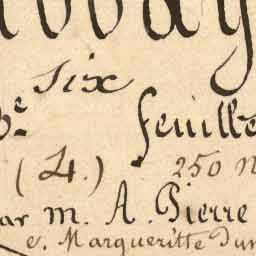 Six
3e. feuille
(4.) 250 n
ar m. A. Pierre
e. Margueritte Dun